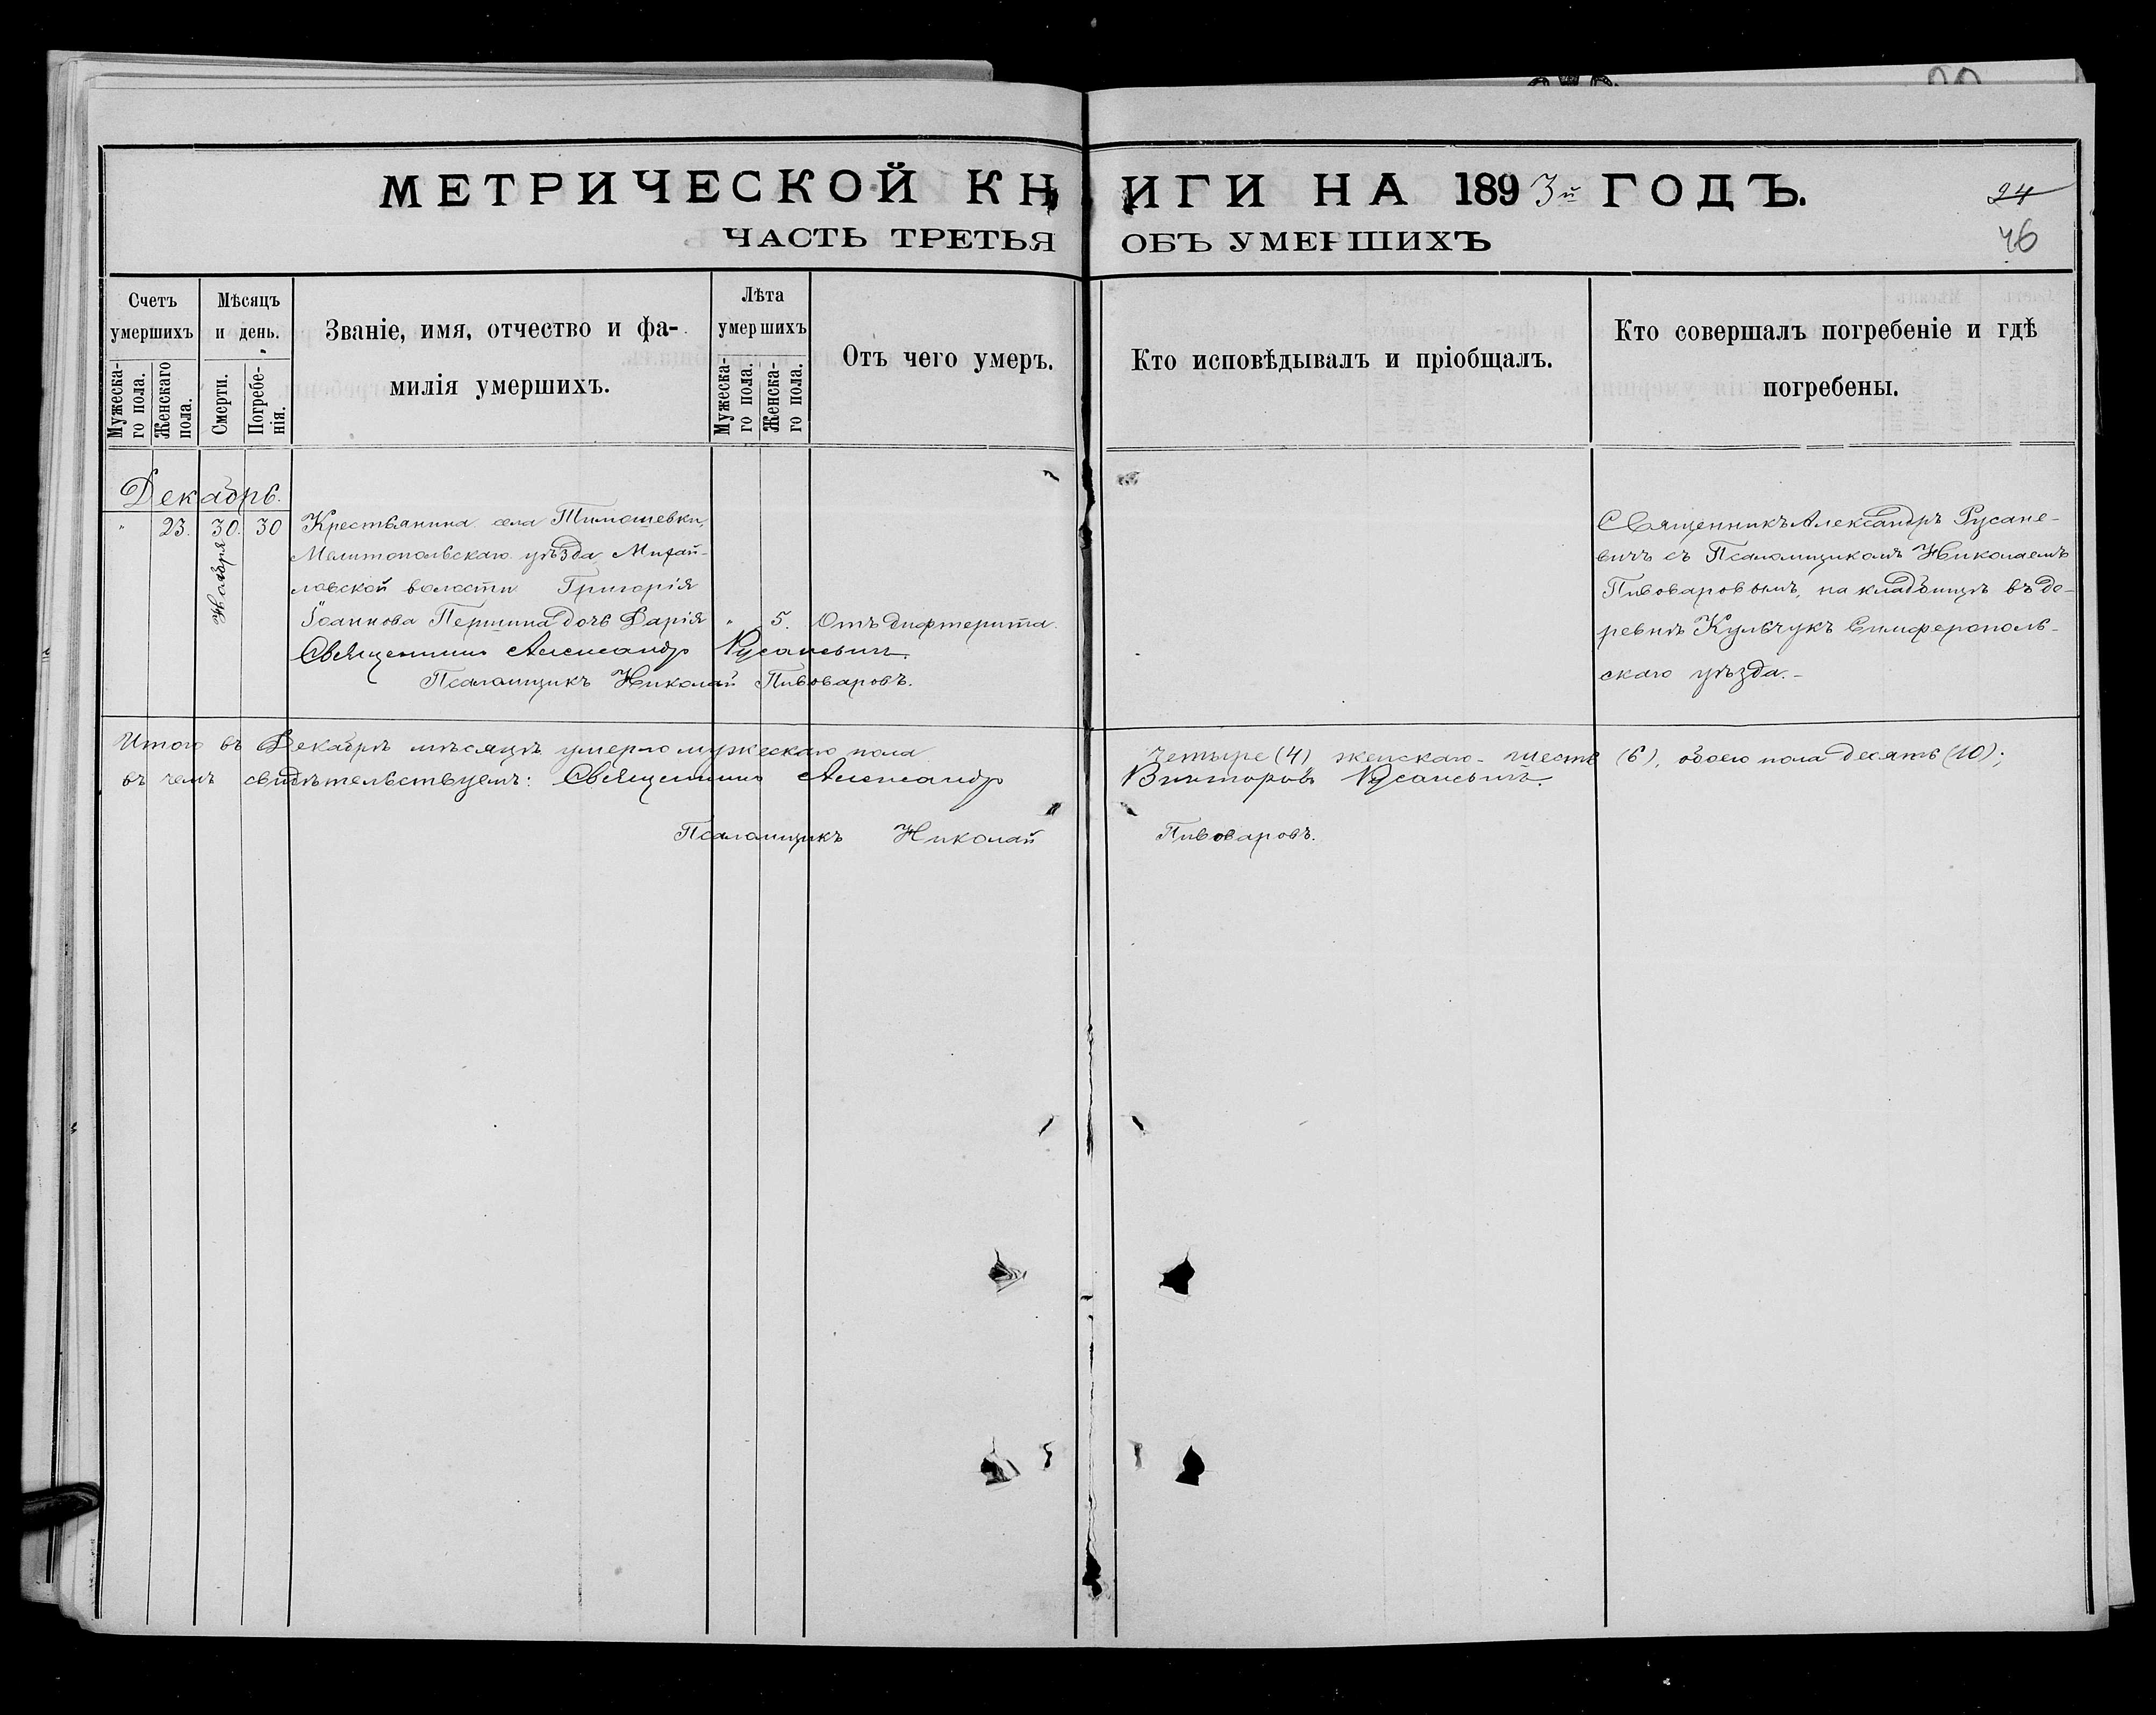 МЕТРИЧЕСКОЙ КНИГИ НА 1893й ГОДЪ.
24
46
ЧАСТЬ ТРЕТЬЯ ОБЪ УМЕРШИХЪ
Счетъ умершихъ
Мужеска-го пола.
Женскаго пола.
Мѣсяцъ и день.
Смерти.
Погребе-нія.
Званіе, имя, отчество и фа-
милія умершихъ.
Лѣта умершихъ
Мужеска-го пола.
Женска-го пола.
Отъ чего умеръ.
Кто исповѣдывалъ и пріобщалъ.
Кто совершалъ погребеніе и гдѣ
погребены.
Декабрь.
" 23. 30. 30
Ноября
Крестьянина села Тимошевки,
Мелитопольскаго уѣзда Михай-
ловской волости Григорія
Іоаннова Першина дочь Дарія " 5. Отъ дифтерита.
Священникъ Александръ Русаневичъ.
Псаломщикъ Николай Пивоваровъ.
Священникъ Александръ Русане-
вичъ съ Псаломщикомъ Николаемъ
Пивоваровымъ, на кладбищѣ въ де-
ревнѣ Кульчукъ Симферополь-
скаго уѣзда.-
Итого въ Декабрѣ мѣсяцѣ умерло мужескаго пола четыре (4) женскаго - шесть (6), обоего пола десять (10);
въ чемъ свидѣтельствуемъ: Священникъ Александръ Викторовъ Русаневичъ.
Псаломщикъ Николай Пивоваровъ.